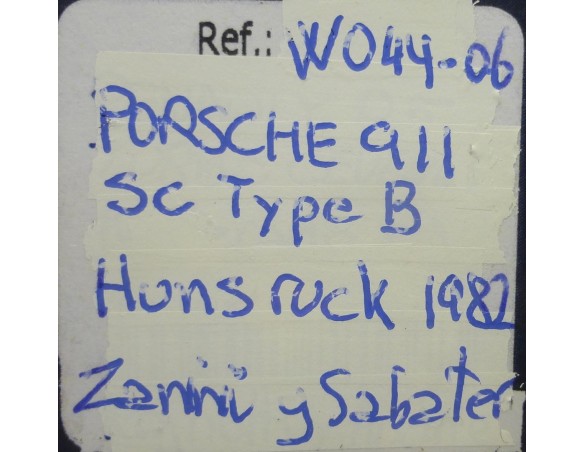 Ref.: W044-06
PORSCHE 911
SC Type B
Hunsruck 1982
Zanini y Sabater